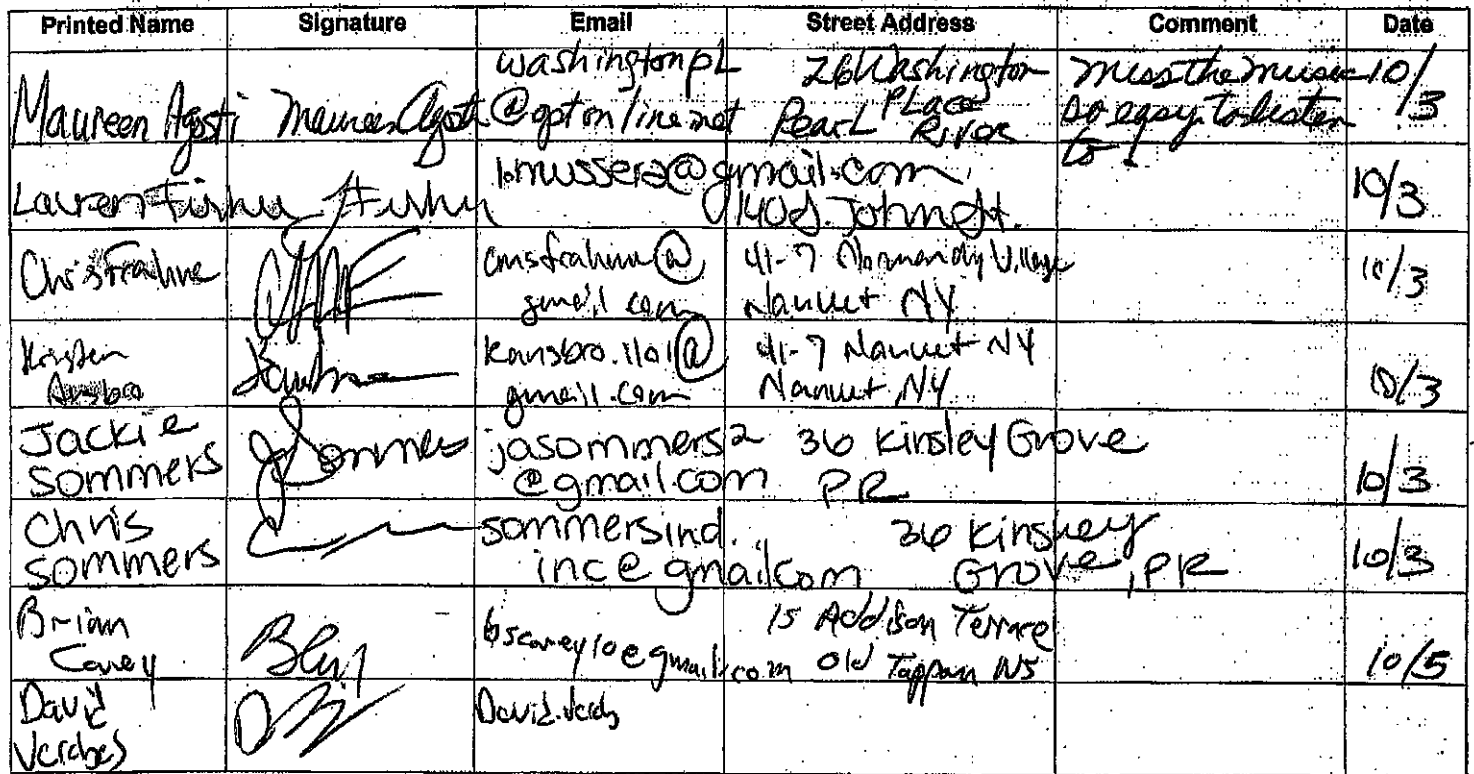 Printed Name Signature Email Street Address Comment Date
Maureen Agosti Maureen Agosti washingtonpl @optonline.net 26 Washington Place Pearl River Miss the music so easy to listen to! 10/3
Lauren Fisher l.mussera@gmail.com 140 S. John St. 10/3
Chris Frahme cmsfrahme@ gmail.com 41-7 Normandy Village Nanuet NY 10/3
Kristen Ansbro kansbro.1101@ gmail.com 41-7 Nanuet NY Nanuet, NY 10/3
Jackie Sommers JSommers jasommers2 @gmail.com 36 Kinsley Grove PR 10/3
Chris Sommers sommersind. inc@gmail.com 36 Kinsley Grove, PR 10/3
Brian Carey bscarey10@gmail.com 15 Addison Terrace Old Tappan NJ 10/5
David